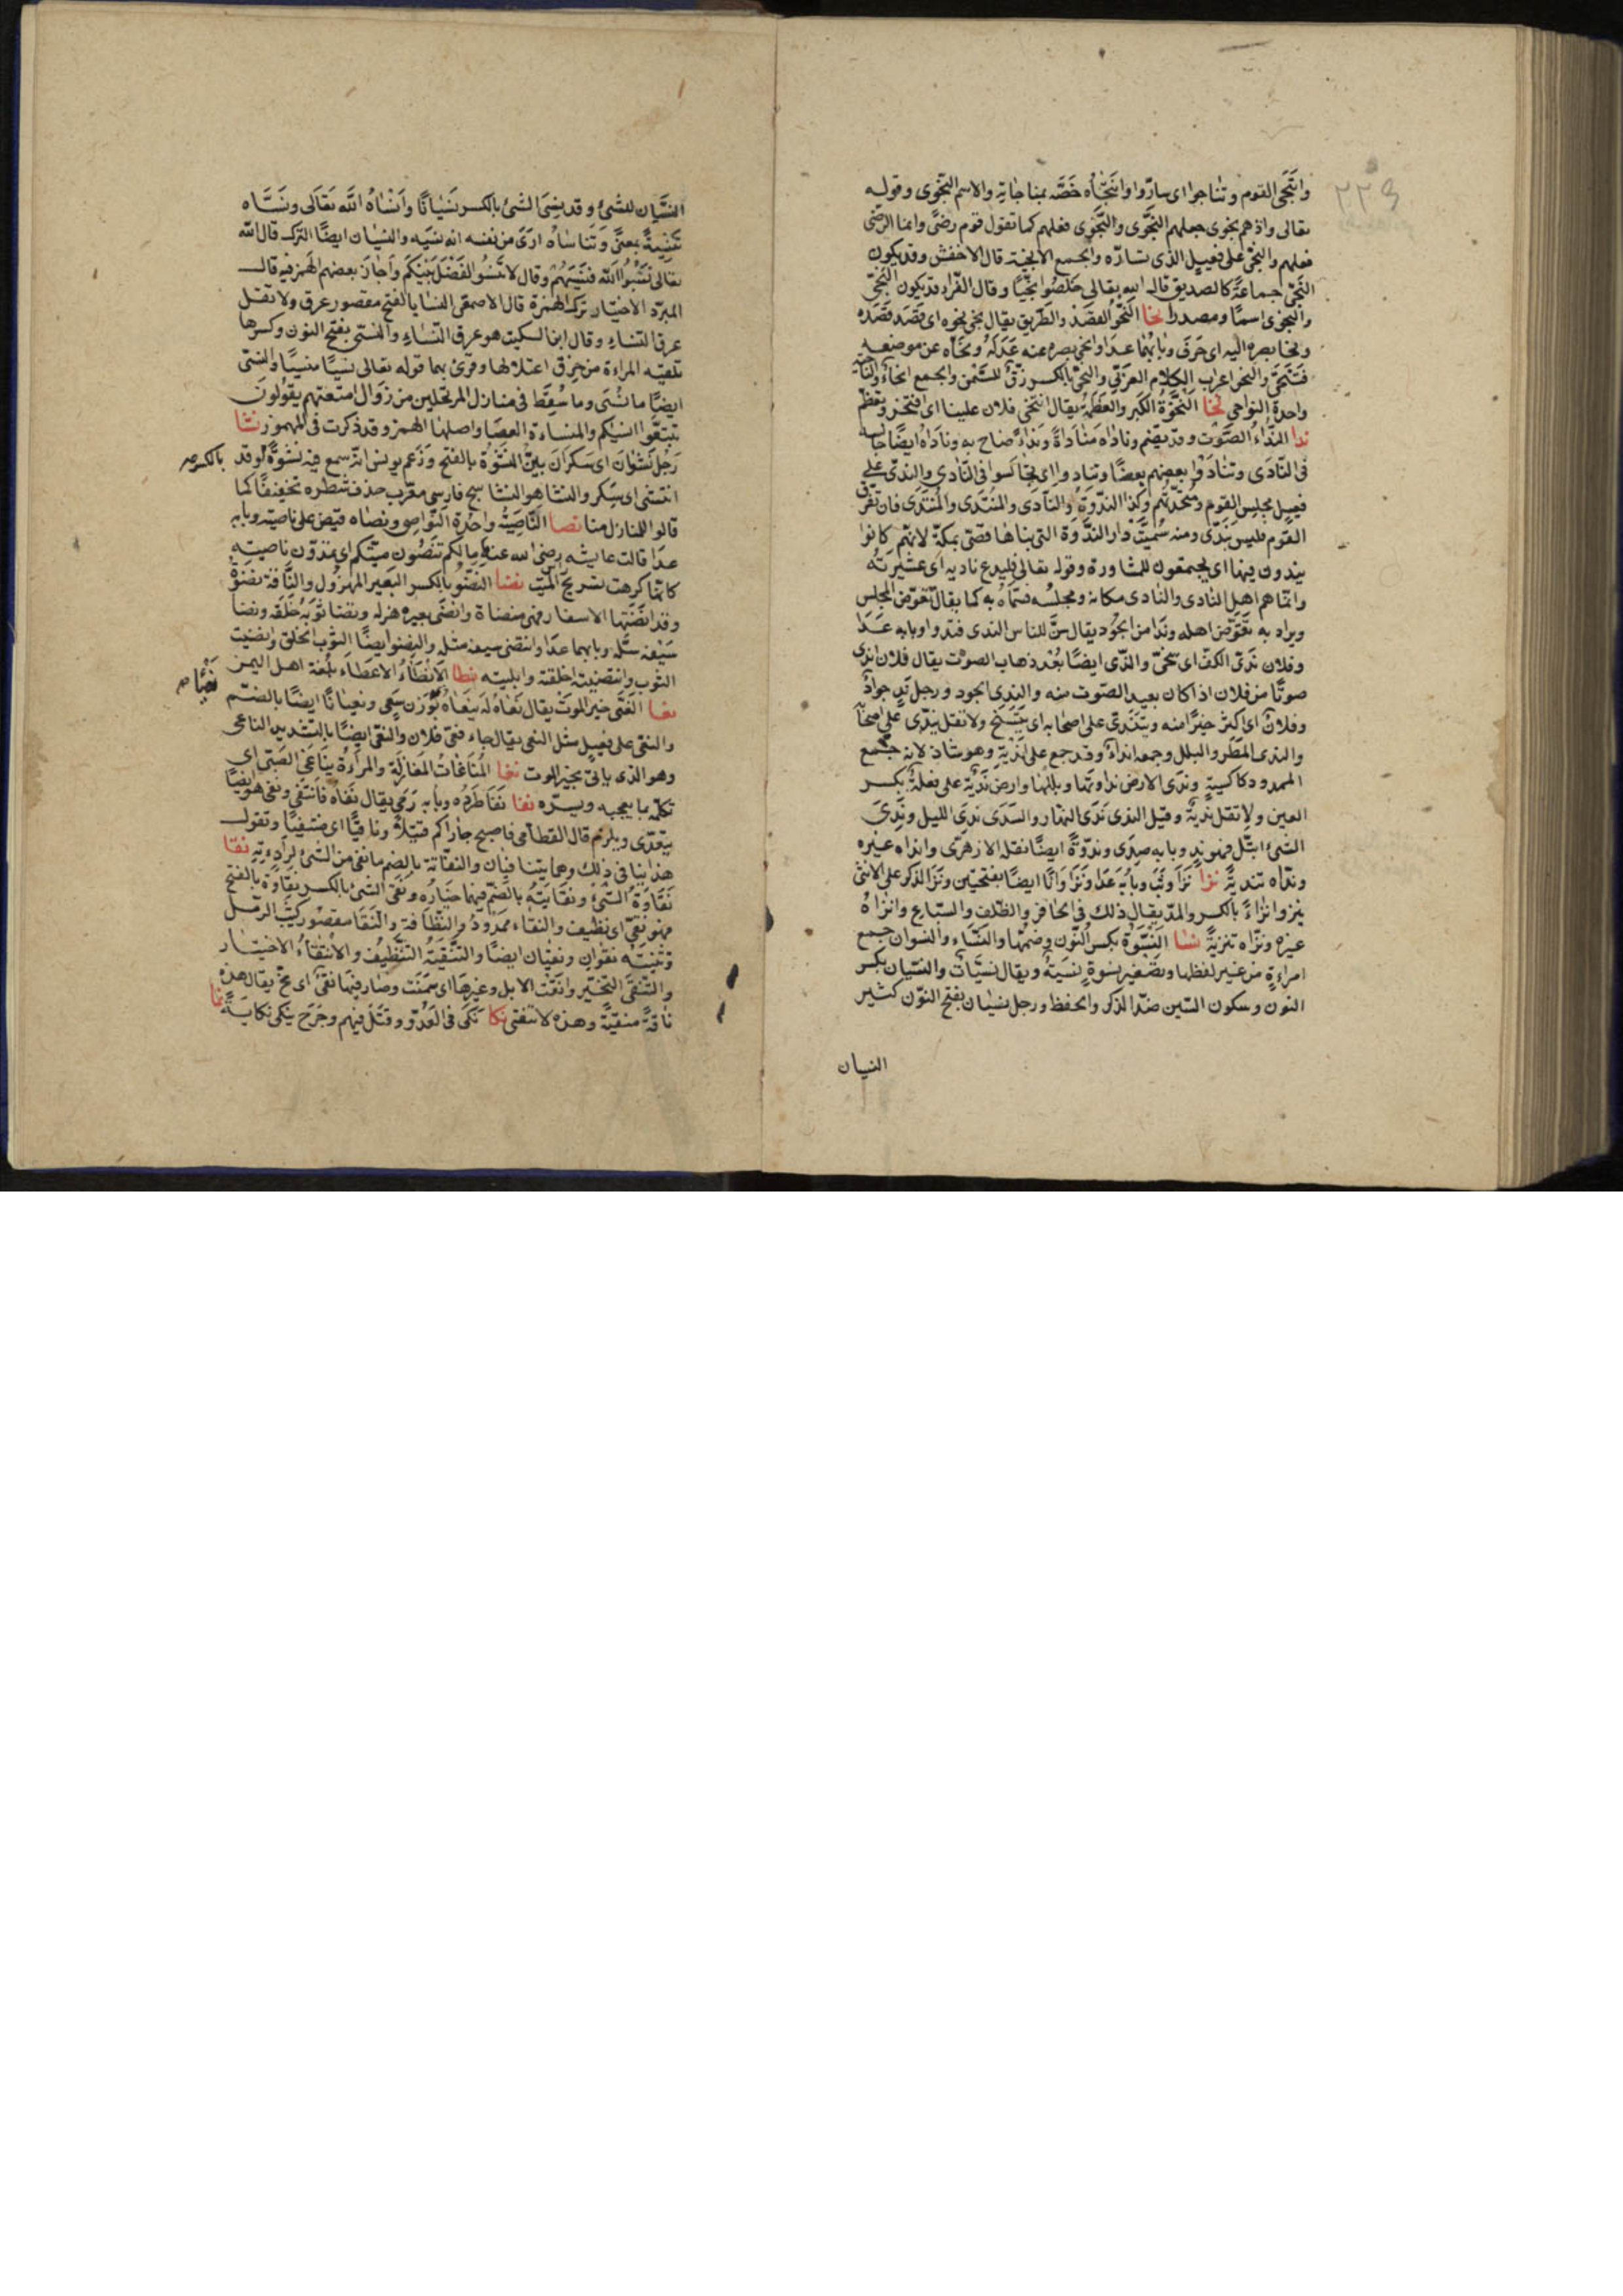 ٢٢٩
وانتجى القوم وتناجوا اى تساروا وانتجاه خصه بمناجاته والاسم النجوى وقوله
تعالى واذ هم نجوى جعلهم النجوى والنجوى فعلهم كما تقول قوم رضى وانما الرضى
فعلهم والنجى على فعيل الذى تساره والجمع الانجية قال الاخفش وقد يكون
النجى جماعة كالصديق قال الله تعالى خلصوا نجيا وقال الفراء قد يكون النجى
والنجوى اسما ومصدرا نحا النحو القصد والطريق يقال نحى نحوه اى قصد قصده
ونحا بصره اليه اى حرف وبابهما عدا وانحى بصره عنه عدله ونحاه عن موضعه
فتنحى والنحو اعراب الكلام العربى والنحى بالكسر زق للسمن والجمع انحاء والناحية
واحدة النواحى نخا النخوة الكبر والعظمة يقال انتخى فلان علينا اى افتخر وتعظم
ندا النداء الصوت وقد يضم وناداه مناداة ونداء صاح به وناداه ايضا جالسه
فى النادى وتنادوا بعضهم بعضا وتنادوا اى تجالسوا فى النادى والندى على
فعيل مجلس القوم ومتحدثهم وكذا الندوة والنادى والمنتدى والمتندى فان تفرق
القوم فليس بندى ومنه سميت دار الندوة التى بناها قصى بمكة لانهم كانوا
يندون فيها اى يجتمعون للمشاورة وقوله تعالى فليدع ناديه اى عشيرته
وانما هم اهل النادى والنادى مكانه ومجلسه فسماه به كما يقال تقوض المجلس
ويراد به تقوض اهله وندا من الجود يقال سن للناس الندى فندوا وبابه عدا
وفلان ندى الكف اى سخى والندى ايضا بعد ذهاب الصوت يقال فلان اندى
صوتا من فلان اذا كان بعيد الصوت منه والندى الجود ورجل ند جواد
وفلان اندى اى اكثر خيرا منه ويتندى على اصحابه اى يتسخى ولا تقل يندى على اصحابه
والندى المطر والبلل وجمعه انداء وقد جمع على اندية وهو شاذ لانه جمع
الممدود كاكسية وندى الارض نداوتها وبللها وارض ندية على فعلة بكسر
العين ولا تقل ندية وقيل الندى ندى النهار والسدى ندى الليل وندى
الشئ ابتل فهو ند وبابه صدى وندوة ايضا نقله الازهرى وانداه غيره
ونداه تندية نزا نزا وثب وبابه عدا ونزا وانا ايضا بفتحتين ونزا الذكر على الانثى
ينزو انزاء بالكسر والمد يقال ذلك فى الحافر والظلف والسباع وانزاه
غيره ونزاه تنزية نسا النسوة بكسر النون وضمها والنساء والنسوان جمع
امراءة من غير لفظها وتصغير نسوة نسية ويقال نسيات والنسيان بكسر
النون وسكون السين ضد الذكر والحفظ ورجل نسيان بفتح النون كثير
النسيان
النسيان للشئ وقد نسى الشئ بالكسر نسيانا وانساه الله تعالى ونساه
تنسية بمعنى وتناساه ارى من نفسه انه نسيه والنسيان ايضا الترك قال الله
تعالى نسوا الله فنسيهم وقال لا تنسوا الفضل بينكم واجاز بعضهم الهمز فيه قال
المبرد الاختيار ترك الهمزة قال الاصمعى النسا بالفتح مقصور عرق ولا تقل
عرق النساء وقال ابن السكيت هو عرق النساء والنسى بفتح النون وكسرها
تلقيه المراءة من خرق اعتلالها وقرئ بهما قوله تعالى نسيا منسيا والنسى
ايضا ما نسى وما سقط فى منازل المرتحلين من رذال امتعتهم يقولون
تتبعوا انساءكم والمنساءة العصا واصلها الهمز وقد ذكرت فى المهموز نشا
رجل نشوان اى سكران بين النشوة بالفتح وزعم يونس انه سمع فيه نشوة وقد
بالكسر صح
انتشى اى سكر والنشا هو النشا سبج فارسى معرب حذف شطره تخفيفا كما
قالوا للمنازل منا نصا الناصية واحدة النواصى ونصاه قبض على ناصيته وبابه
عدا قالت عايشه رضى الله عنها ما لكم تنصون ميتكم اى تمدون ناصيته
كانها كرهت تسريح الميت نضا النضو بالكسر البعير المهزول والناقة نضوة
وقد انضتها الاسفار فهى منضاة وانضى بعيره هزله ونضا ثوبه خلعه ونضا
سيفه سله وبابهما عدا وانتضى سيفه مثله والنضو ايضا الثوب الخلق وانضيت
الثوب وانتضيته اخلقته وابليته نطا الانطاء الاعطاء بلغة اهل اليمن
نعا النعى خبر الموت يقال نعاه له ينعاه بوزن سعى ونعيانا ايضا بالضم
نعيا صح
والنعى على فعيل مثل النعى يقال جاء نعى فلان والنعى ايضا بالتشديد الناعى
وهو الذى ياتى بخبر الموت نغا المناغاة المغازلة والمراءة تناغى الصبى اى
تكلمه بما يعجبه ويسره نفا نفا طرده وبابه رمى يقال نفاه فانتفى ونفى هو ايضا
يتعدى ويلزم قال القطامى فاصبح جاراكم قتيلا ونافيا اى منتفيا وتقول
هذا ينافى ذلك وهما يتنافيان والنفاية بالضم ما نفى من الشئ لرداءته نقا
نقاوة الشئ ونقايته بالضم فيهما خياره ونقى الشئ بالكسر نقاوة بالفتح
فهو نقى اى نظيف والنقاء ممدود والنظافة والنقا مقصور كثيب الرمل
وتثنيته نقوان ونقيان ايضا والتنقية التنظيف والانتقاء الاختيار
والتنقى التخير وانقت الابل وغيرها اى سمنت وصار فيها نقى اى مخ يقال هذه
ناقة منقية وهذه لا تنقى نكا نكى فى العدو وقتل فيهم وجرح ينكى نكاية نما